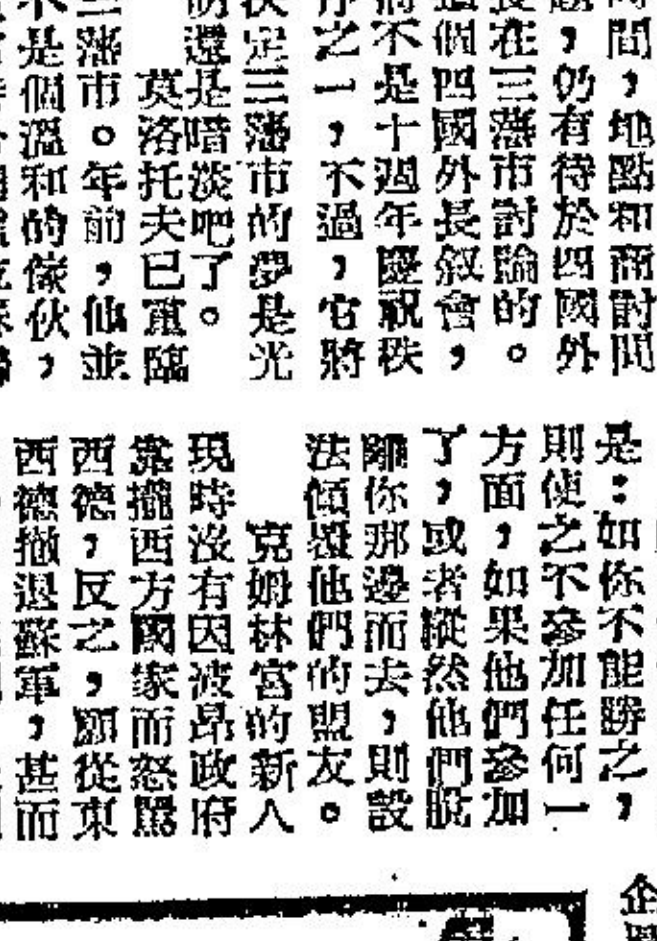 間,地點和商討問
題,仍有待於四國外
長在三藩市討論的。
個四國外長叙會,
將不是十週年慶祝秩
序之一,不過,它將
決定三藩市的夢是光
明還是暗淡吧了。
莫洛托夫已重臨
三藩市。年前,他並
不是個溫和的傢伙,
是:如你不能勝之,
則使之不參加任何一
方面,如果他們參加
了,或者縱然他們脫
離你那邊而去,則設
法傾覆他們的盟友。
克姆林宮的新人
現時沒有因波昂政府
靠攏西方國家而怒罵
西德,反之,願從東
西德撤退蘇軍,甚而
企